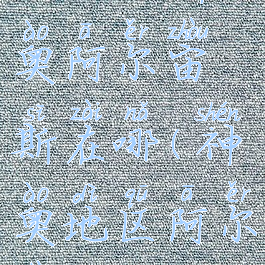 ào ā ěr zhòu
奥阿尔宙
sī zài nǎ shén
斯在哪(神
ào dì qū ā ěr
奥地区阿尔